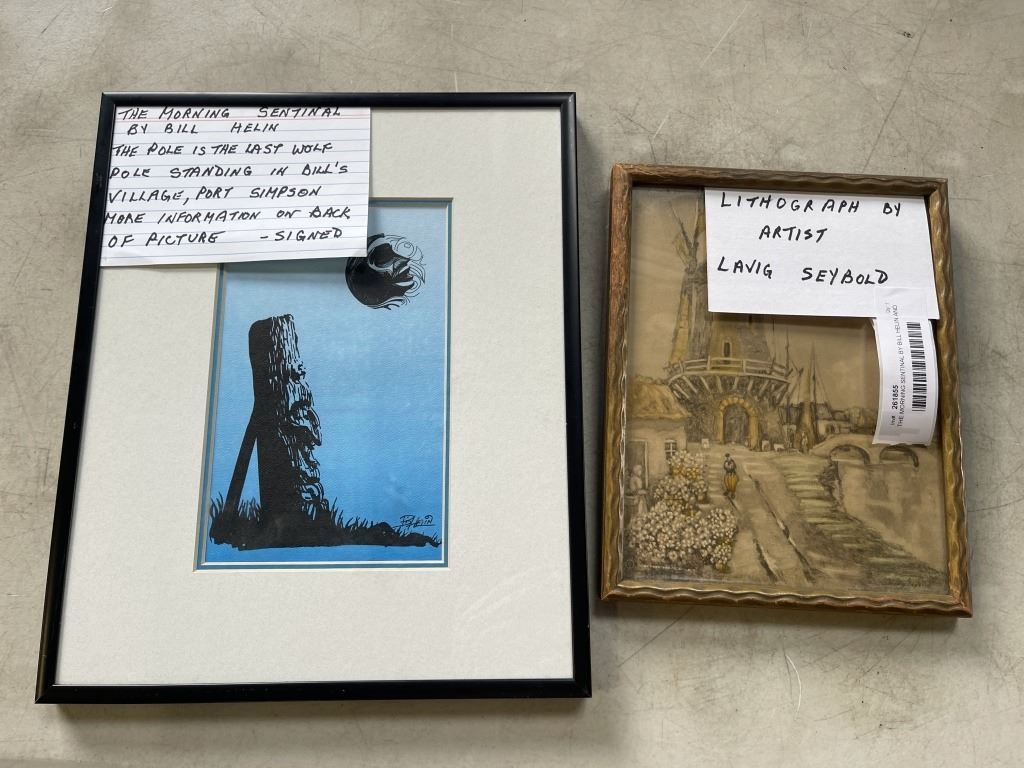 THE MORNING SENTINAL
BY BILL HELIN
THE POLE IS THE LAST WOLF
POLE STANDING IN BILL'S
VILLAGE, PORT SIMPSON
MORE INFORMATION ON BACK
OF PICTURE - SIGNED
B HELIN
LITHOGRAPH BY
ARTIST
LAVIG SEYBOLD
Inv# 261855
THE MORNING SENTINAL BY BILL HELIN AND